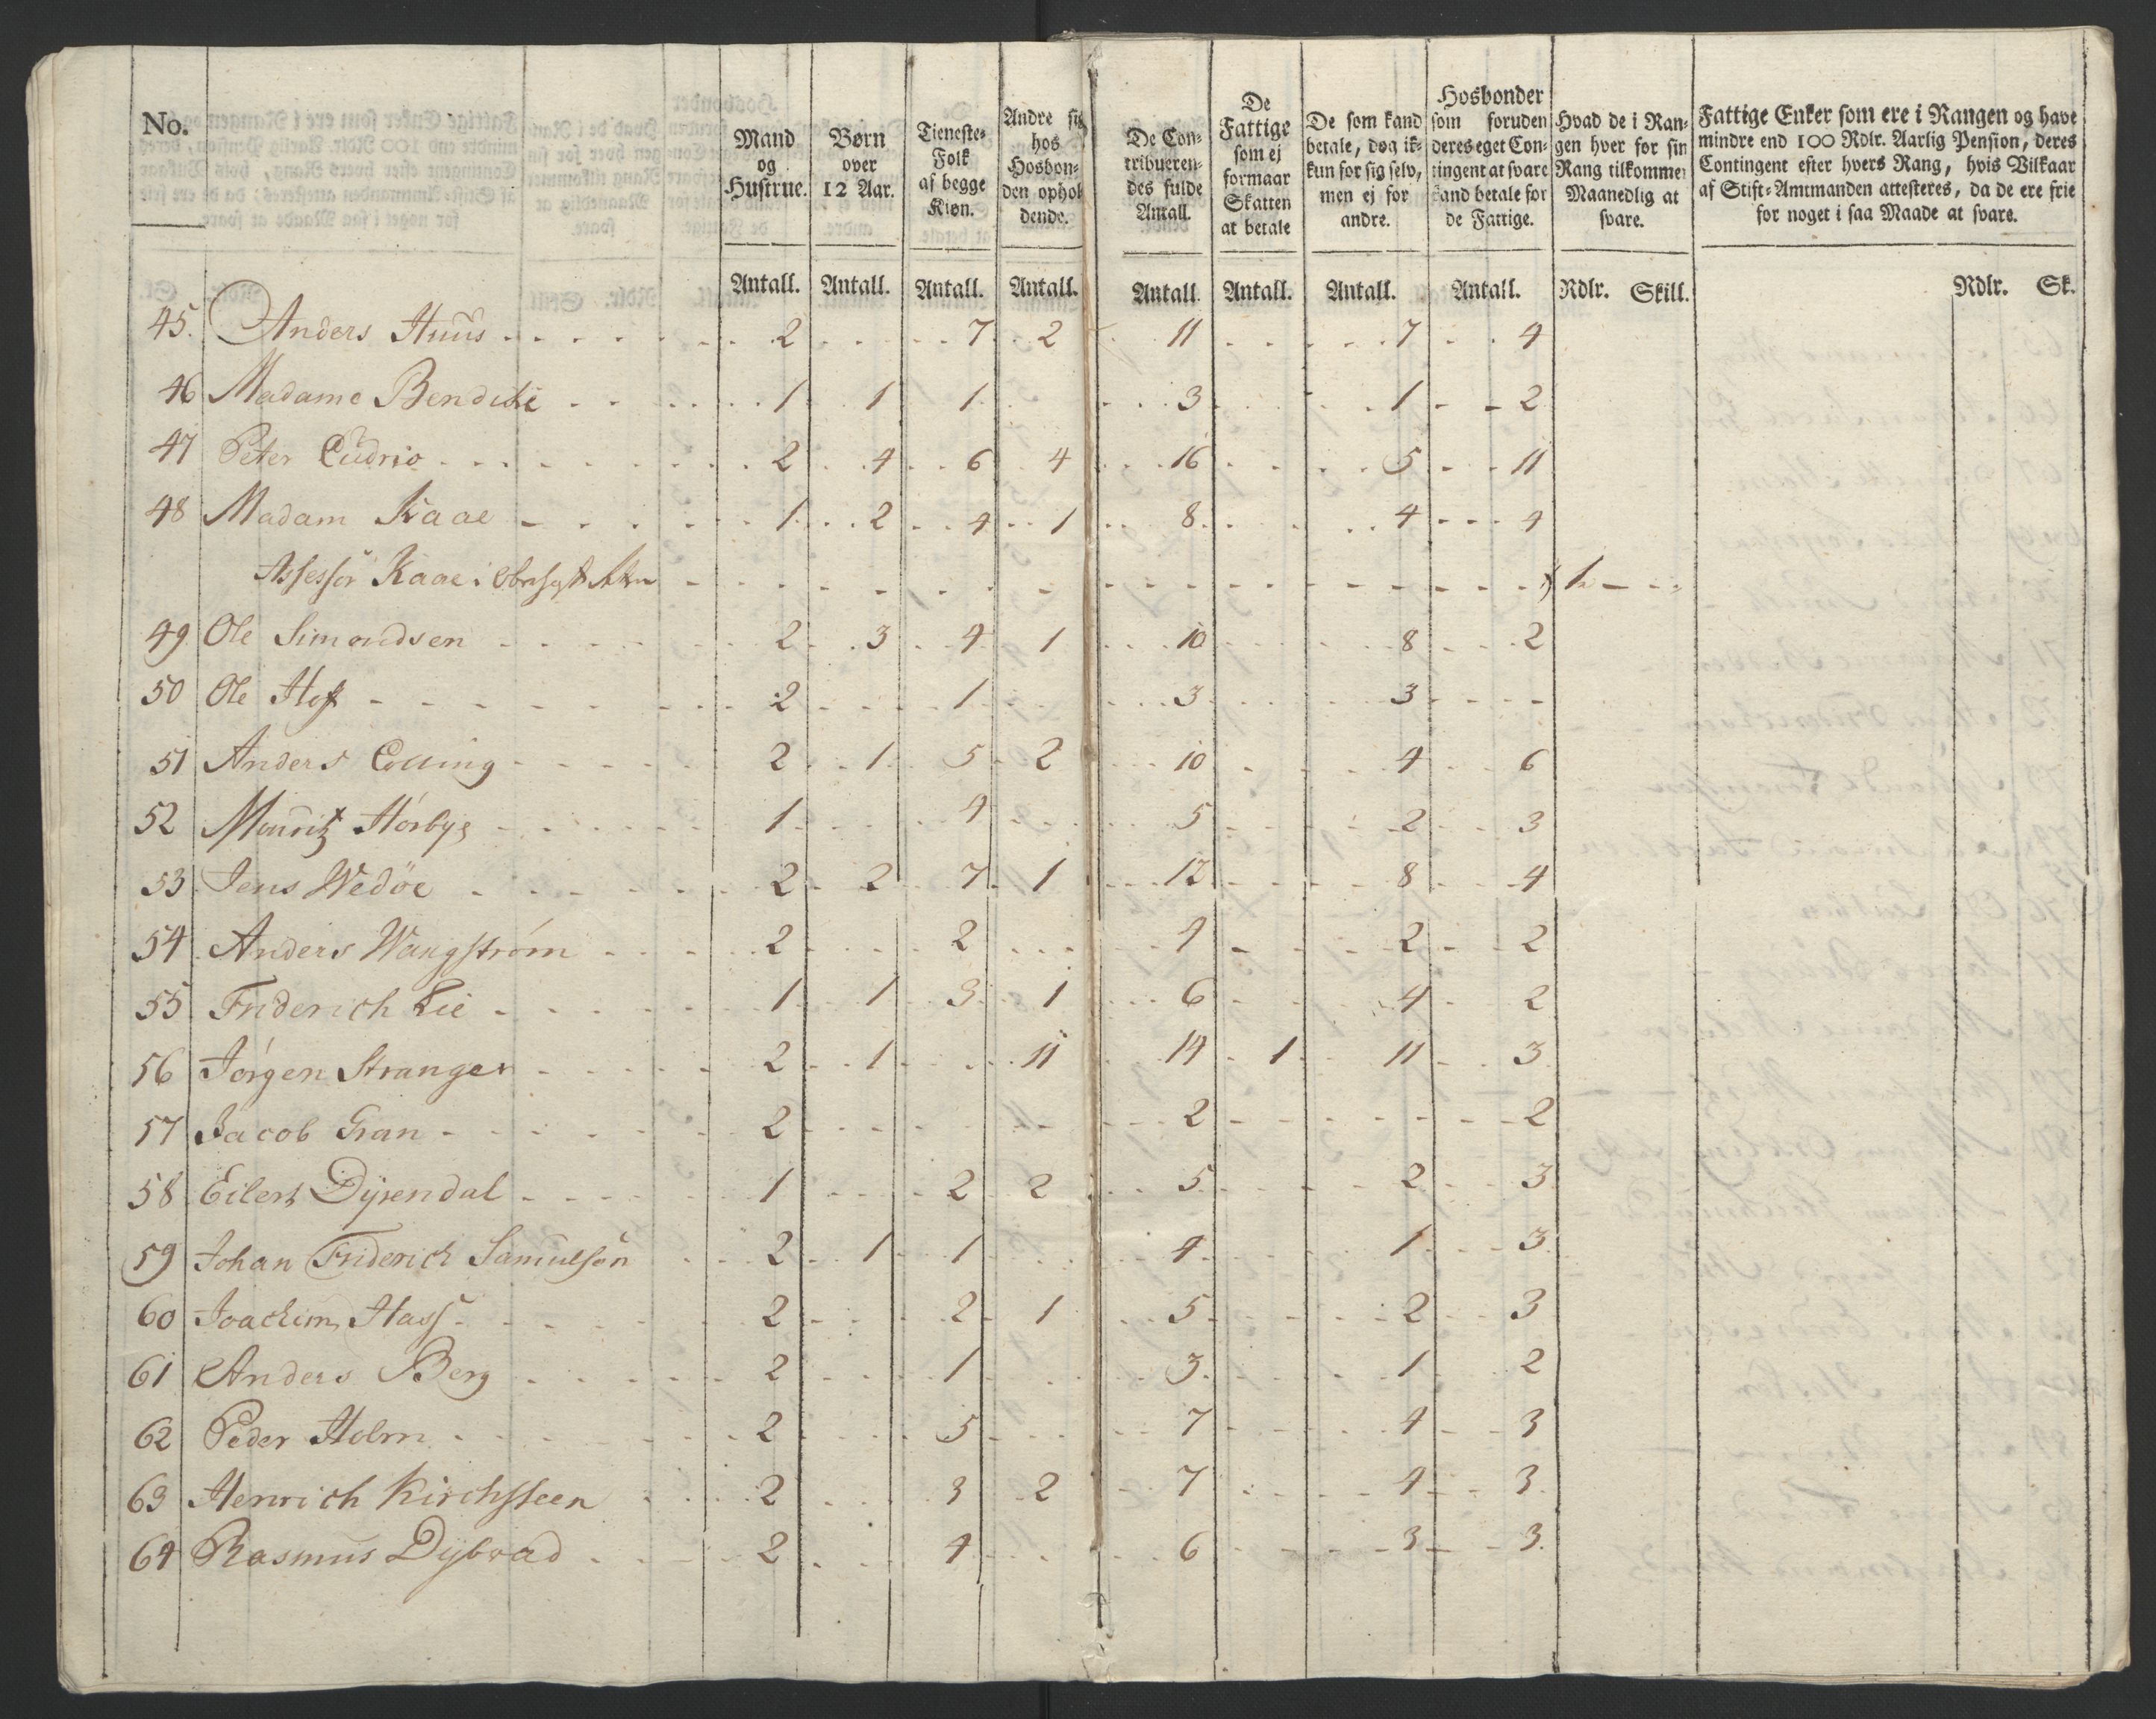 No.
Mand og Hustrue.
Børn over 12 Aar.
Tieneste-Folk af begge Kiøn.
Andre sig hos Hosbon-den ophol dende.
De Con-tribueren-des fulde Antall.
De Fattige som ej formaar Skatten at betale
De som kand betale, dog ik-kun for sig selv, men ej for andre.
Hosbonder som foruden deres eget Con-tingent at svare kand betale for de Fattige.
Hvad de i Ran-gen hver for sin Rang tilkommer Maanedlig at svare.
Fattige Enker som ere i Rangen og have mindre end 100 Rdlr. Aarlig Pension, deres Contingent efter hvers Rang, hvis Vilkaar af Stift-Amtmanden attesteres, da de ere frie for noget i saa Maade at svare.
Antall. Antall. Antall. Antall. Antall. Antall. Antall. Antall. Rdlr. Skill. Rdlr. Sk.
45. Anders Huus 2 7 2 11 7 4
46 Madame Bendiche 1 1 1 3 1 2
47 Peter Cudrio 2 4 6 4 16 5 11
48 Madam Kaae 1 2 4 1 8 4 4
Assessor Kaae i 1
49 Ole Simondsen 2 3 4 1 10 8 2
50 Ole Hof 2 1 3 3
51 Anders Colling 2 1 5 2 10 4 6
52 Mouritz Hørbye 1 4 5 2 3
53 Jens Wedøe 2 2 7 1 12 8 4
54 Anders Wangstrøm 2 2 4 2 2
55 Friderich Lie 1 1 3 1 6 4 2
56 Jørgen Stranger 2 1 11 14 1 11 3
57 Jacob Gran 2 2 2
58 Eilert Dyrendal 1 2 2 5 2 3
59 Johan Friderich Samuelsøn 2 1 1 4 1 3
60 Joachim Hass 2 2 1 5 2 3
61 Anders Berg 2 1 3 1 2
62 Peder Holm 2 5 7 4 3
63 Henrich Kirchsteen 2 3 2 7 4 3
64 Rasmus Dybvad 2 4 6 3 3